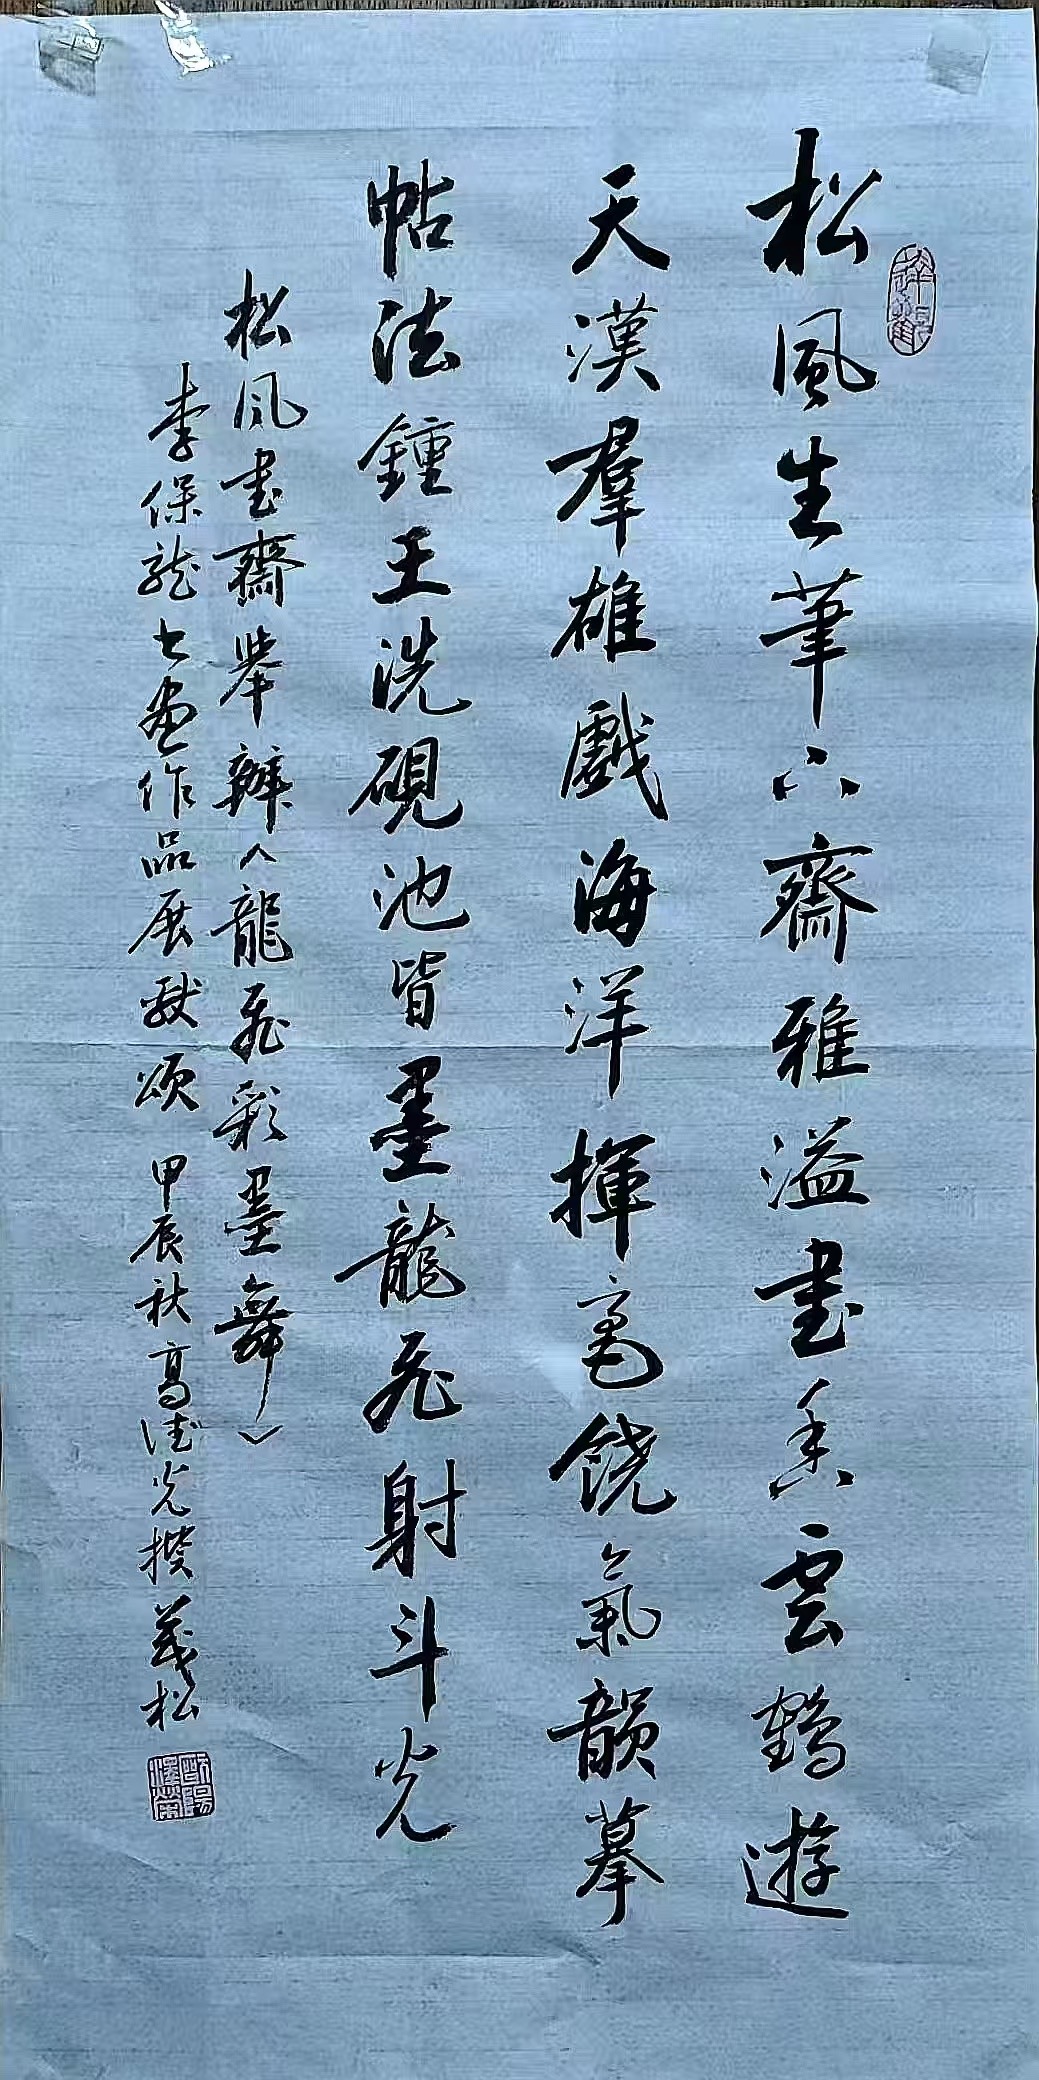 松風生筆下齋雅溢書香雲鶴遊
天漢羣雄戲海洋揮毫饒氣韻摹
帖法鍾王洗硯池皆墨龍飛射斗光
松风书齋举辦《龍飛彩墨舞》
李保龙书画作品展献颂 甲辰秋 高德光撰 茂松